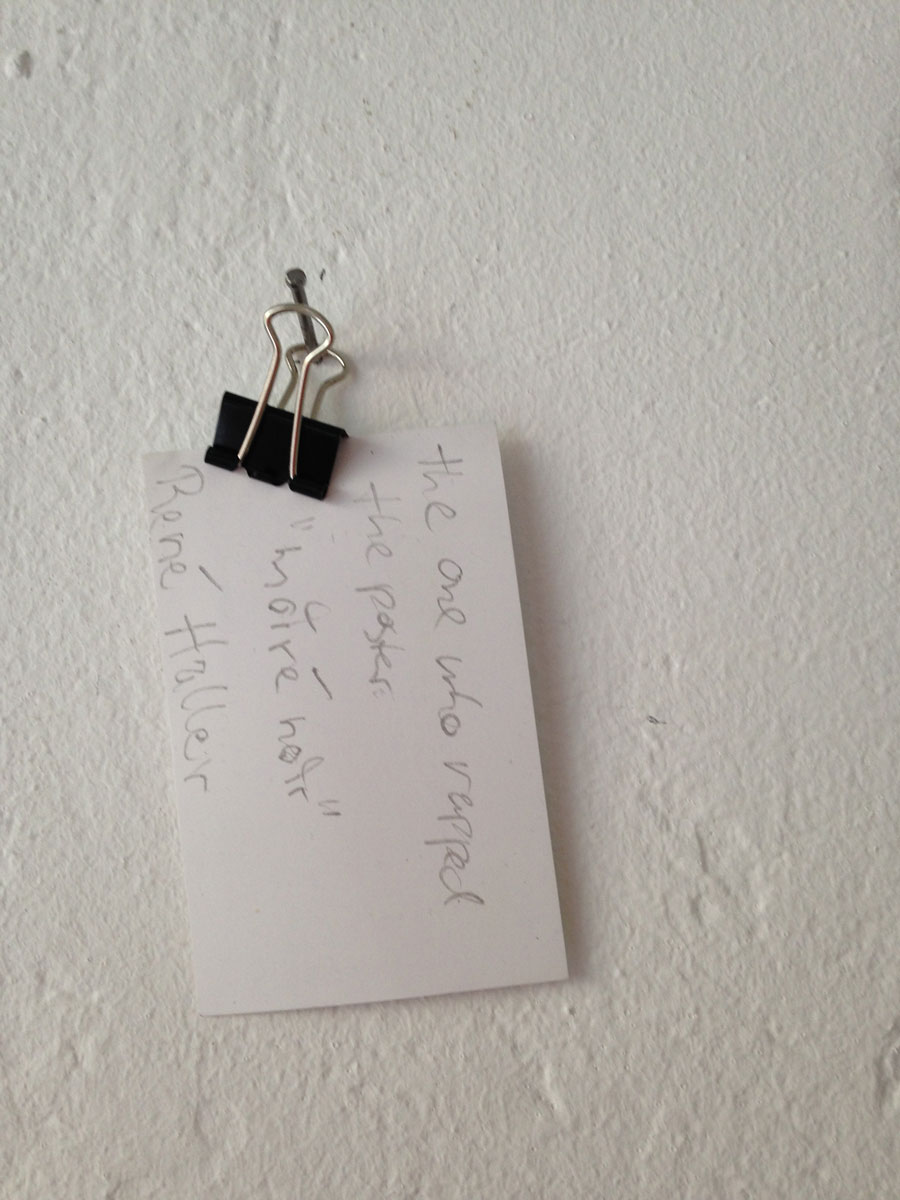 the one who rapped
the poster:
"moiré noir"
René Haller